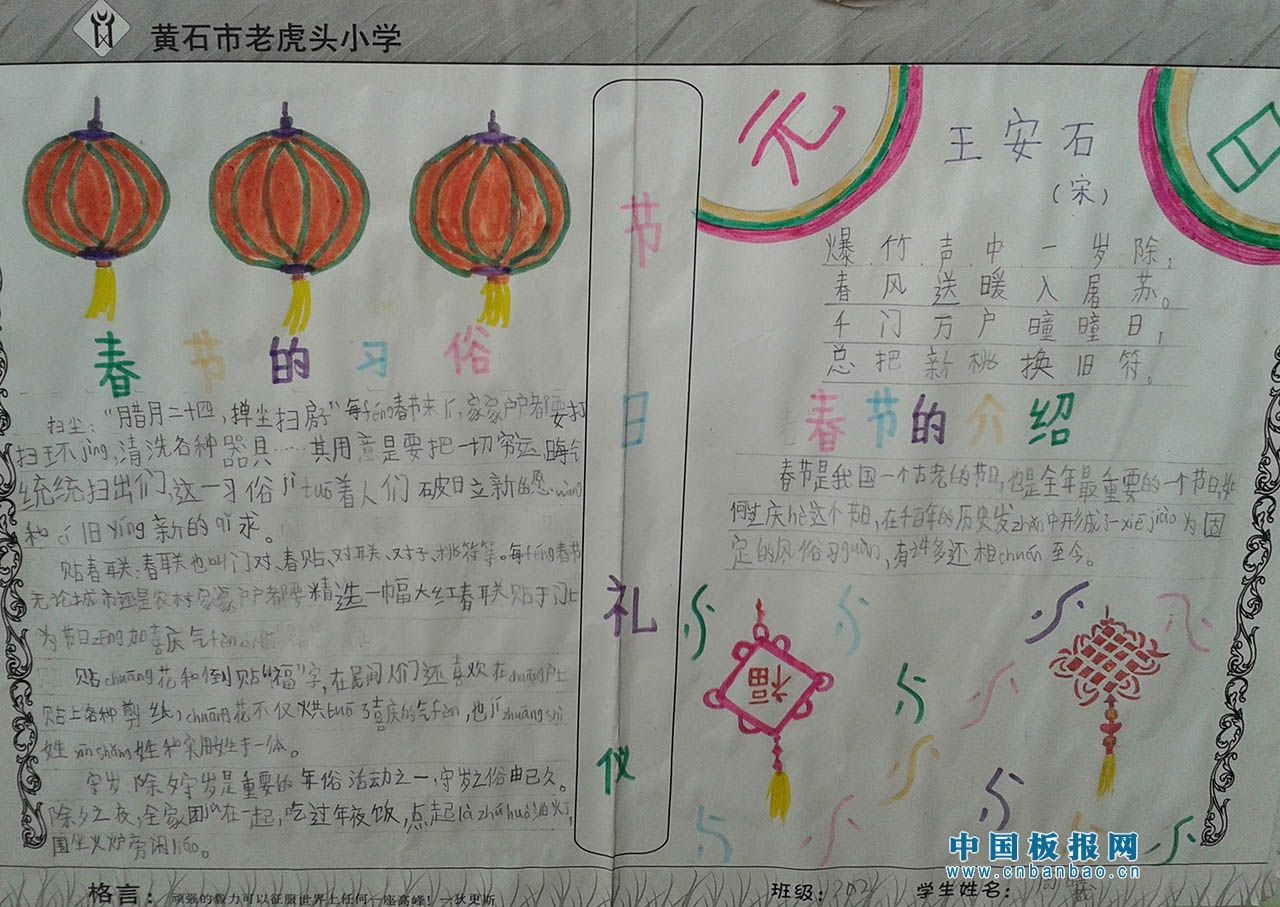 黄石市老虎头小学
春节的习俗
扫尘:“腊月二十四,掸尘扫房”每féng春节来ī,家家户户都要打
扫环jìng,清洗各种器具……其用意是要把一切穷运,晦气
统统扫出们,这一习俗jì tuō着人们破日立新的愿wàng
和cí旧yíng新的qí求。
贴春联:春联也叫门对、春贴、对联、对子、桃符等。每féng春节
无论城市还是农村家家户户都要精选一幅大红春联贴于门上
为节日zēng加喜庆气fēn
贴chuāng花和倒贴“福”字,在民间人们还喜欢在chuāng户上
贴上各种剪纸,chuāng花不仅烘tuō了喜庆的气fēn,也jí zhuāng shì
姓xīn shǎng姓和实用姓于一体。
守岁:除夕守岁是重要的年俗活动之一,守岁之俗由已久。
除夕之夜,全家团jù在一起,吃过年夜饭,点起là zhú huò油灯,
围坐火炉旁闲liáo。
节日礼仪
元日
王安石
(宋)
爆竹声中一岁除,
春风送暖入屠苏。
千门万户曈曈日,
总把新桃换旧符。
春节的介绍
春节是我国一个古老的节日,也是全年最重要的一个节日,如
何过庆hè这个节日,在千百年的历史发zhǎn中形成了一xiē jiào为固
定的风俗习guàn,有许多还相chuán至今。
福
中国板报网
www.cnbanbao.cn
格言: 顽强的毅力可以征服世界上任何一座高峰!—狄更斯
班级:202 学生姓名: